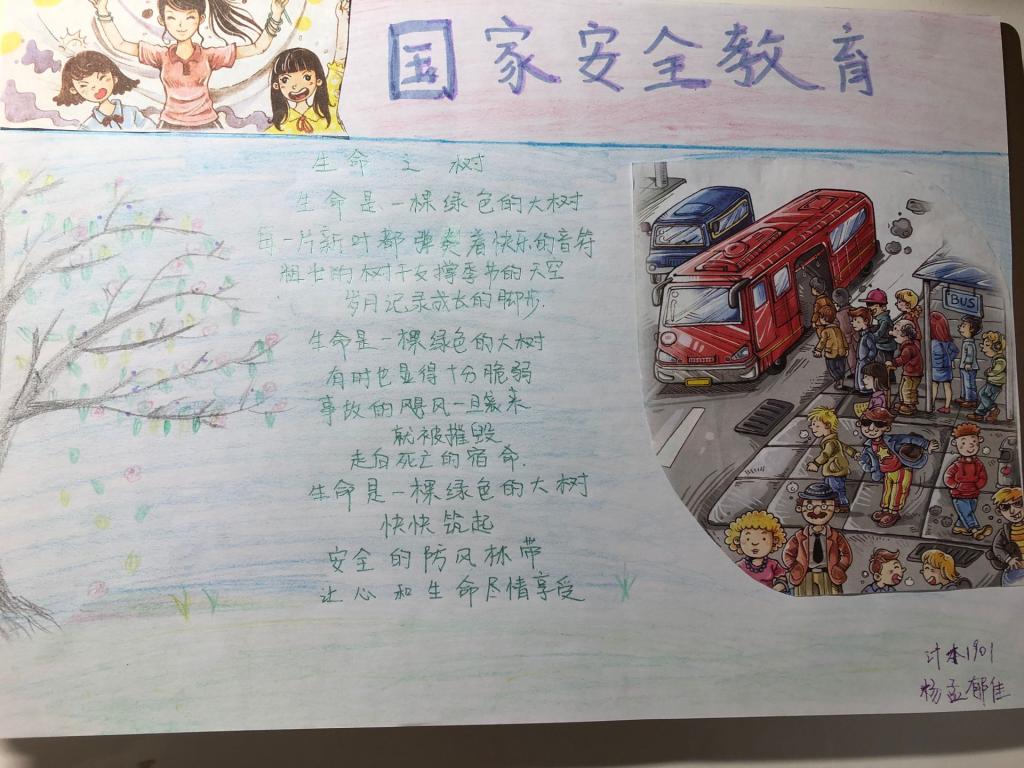 国家安全教育
生命之树
生命是一棵绿色的大树
每一片新叶都弹奏着快乐的音符
粗壮的树干支撑季节的天空
岁月记录成长的脚步.
生命是一棵绿色的大树
有时也显得十分脆弱
事故的飓风一旦袭来
就被摧毁
走向死亡的宿命.
生命是一棵绿色的大树
快快筑起
安全的防风林带
让心和生命尽情享受
BUS
计本1901
杨孟郁佳